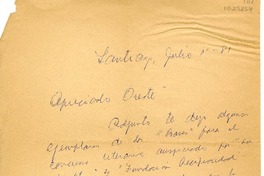 Santiago, Julio 1º - 81
Apreciado Oreste
Adjunto te dejo algunos
ejemplares de las "bases" para el
concurso literario auspiciado por la
" y "Fundación